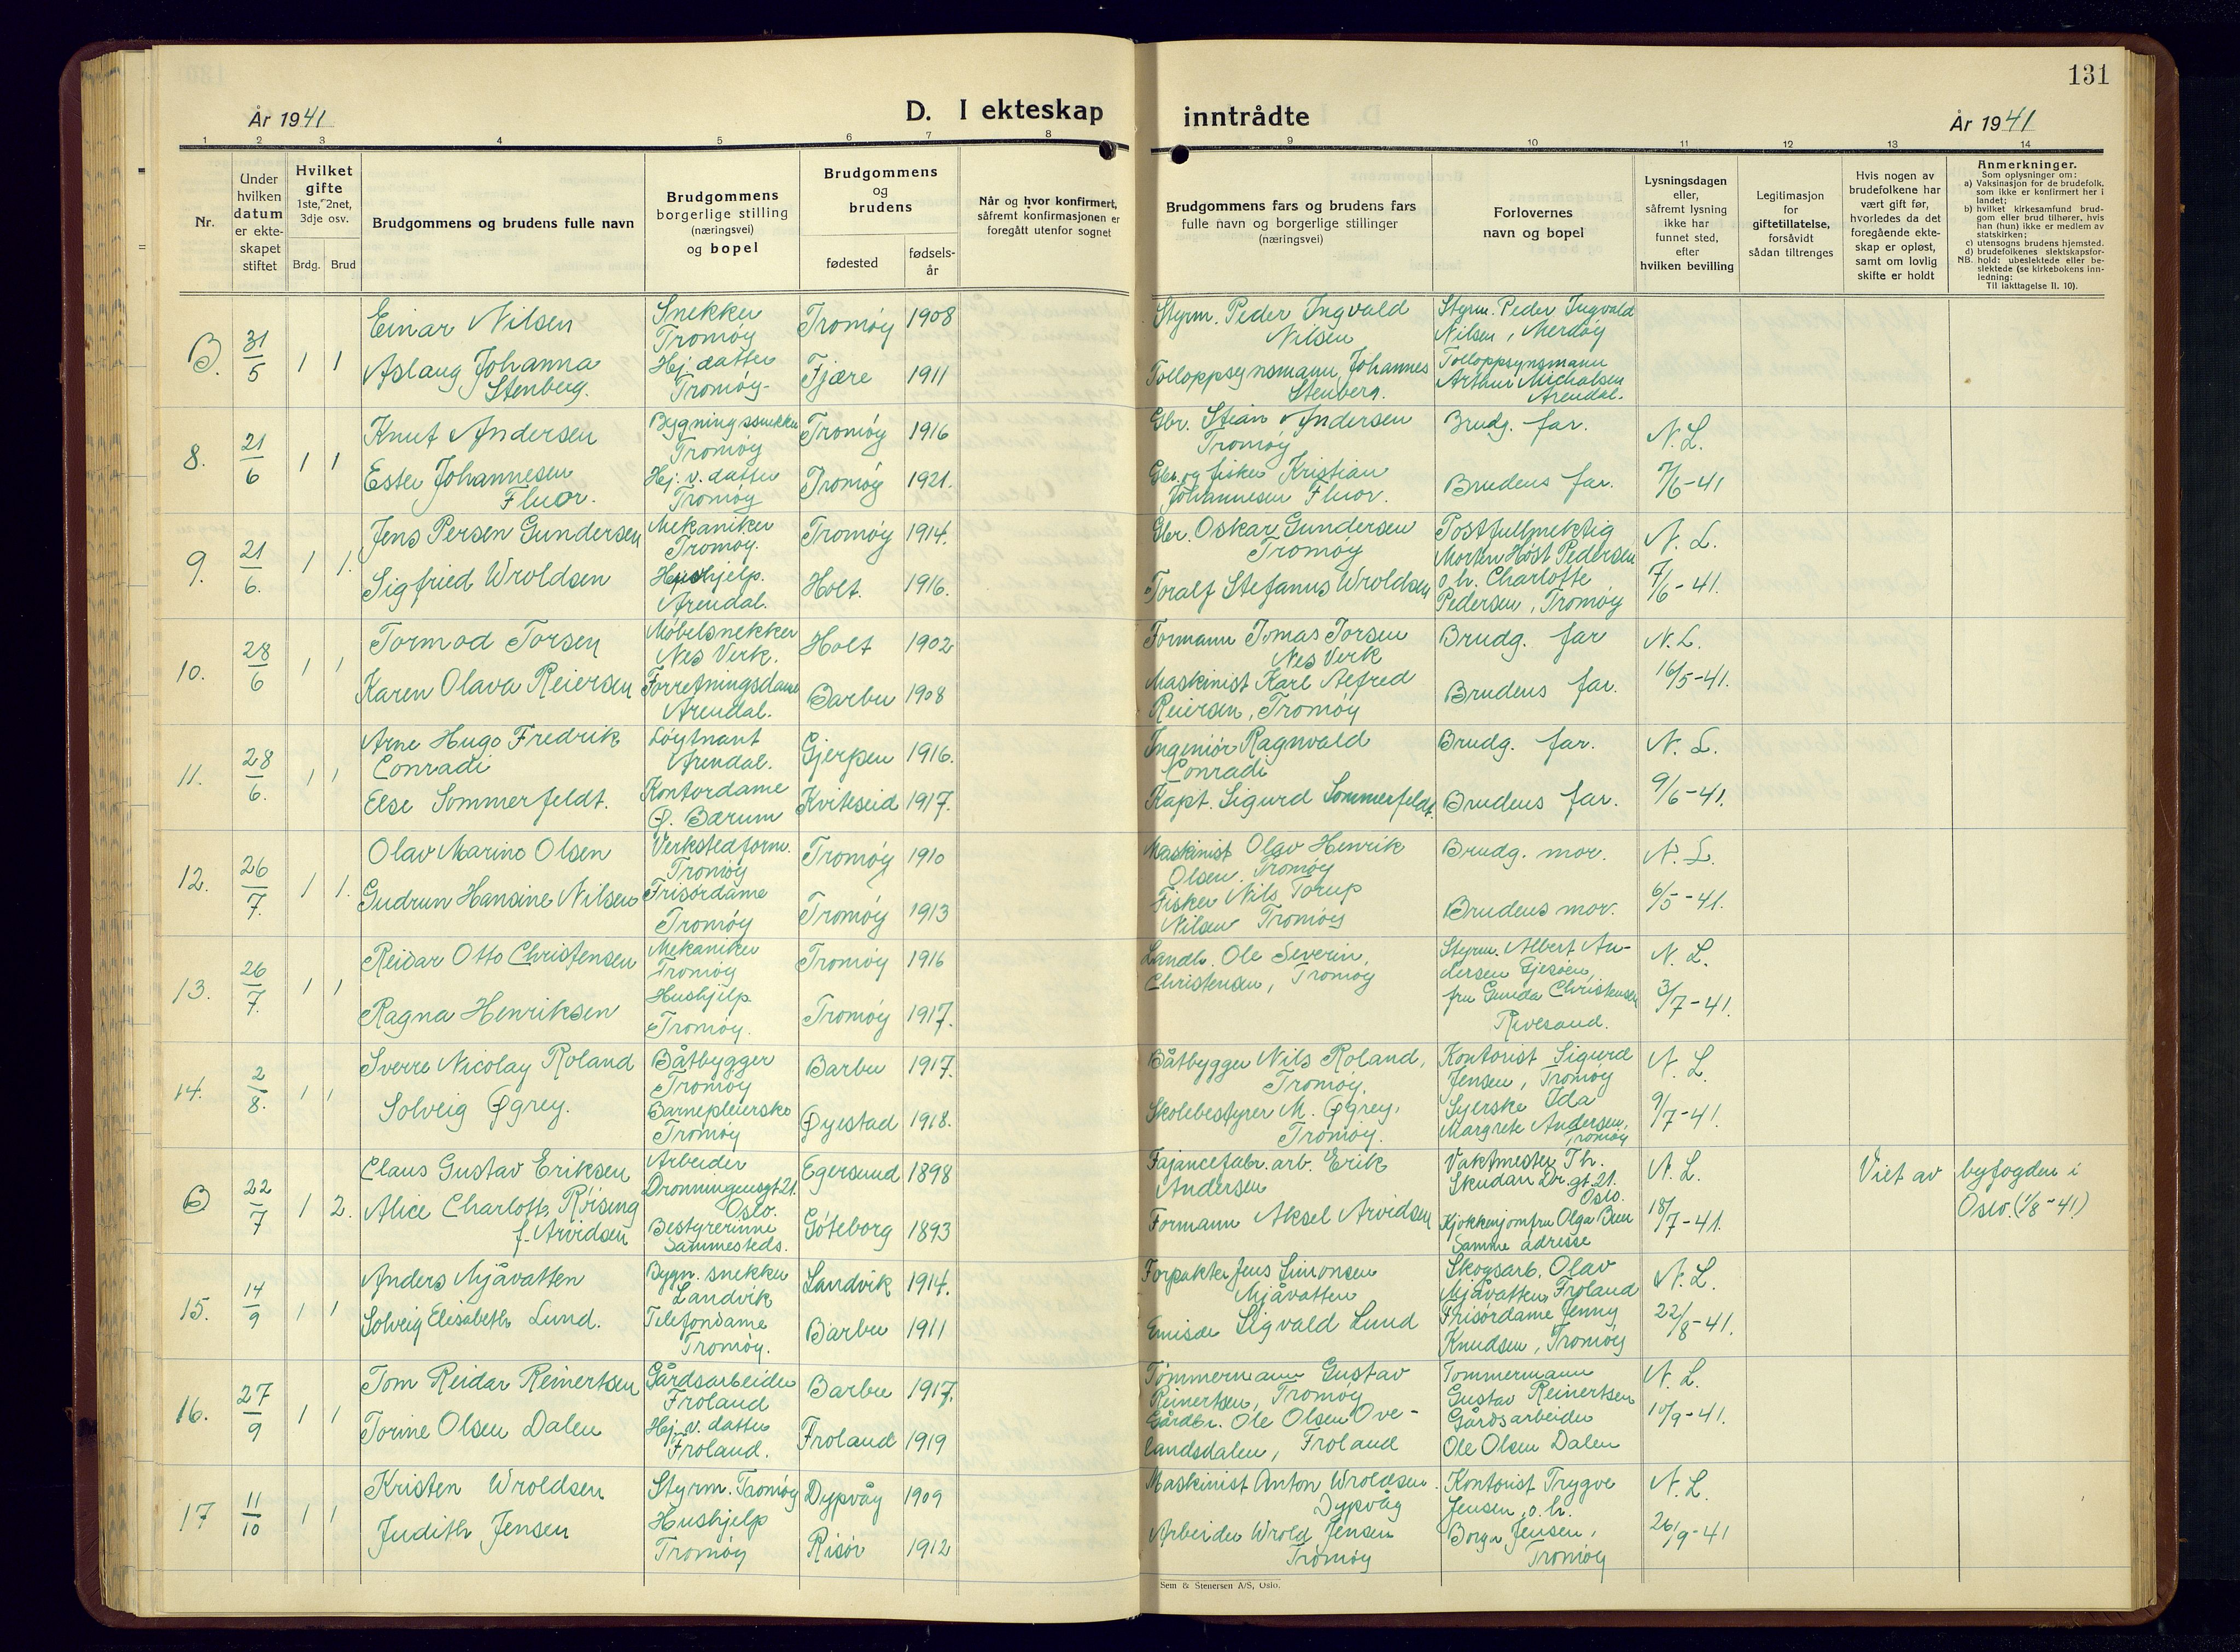 131
År 1941
D. I ekteskap inntrådte
År 1941
1 2 3 4 5 6 7 8 9 10 11 12 13 14
Nr.
Under
hvilken
datum
er ekte-
skapet
stiftet
Hvilket
gifte
1ste, 2net,
3dje osv.
Brdg. Brud
Brudgommens og brudens fulle navn
Brudgommens
borgerlige stilling
(næringsvei)
og bopel
Brudgommens
og
brudens
fødested
fødsels-
år
Når og hvor konfirmert,
såfremt konfirmasjonen er
foregått utenfor sognet
Brudgommens fars og brudens fars
fulle navn og borgerlige stillinger
(næringsvei)
Forlovernes
navn og bopel
Lysningsdagen
eller,
såfremt lysning
ikke har
funnet sted,
efter
hvilken bevilling
Legitimasjon
for
giftetillatelse,
forsåvidt
sådan tiltrenges
Hvis nogen av
brudefolkene har
vært gift før,
hvorledes da det
foregående ekte-
skap er opløst,
samt om lovlig
skifte er holdt
Anmerkninger.
Som oplysninger om:
a) Vaksinasjon for de brudefolk,
som ikke er konfirmert her i
landet;
b) hvilket kirkesamfund brud-
gom eller brud tilhører, hvis
han (hun) ikke er medlem av
statskirken;
c) utensogns brudens hjemsted.
d) brudefolkenes slektskapsfor-
NB. hold: ubeslektede eller be-
slektede (se kirkebokens inn-
ledning:
Til iakttagelse II. 10).
B. 31/5 1 1
Einar Nilsen
Aslaug Johanna
Stenberg.
Snekker
Tromøy
Hj. datter
Tromøy
Tromøy 1908
Fjære 1911
Styrm. Peder Ingvald
Nilsen
Tolloppsynsmann Johannes
Stenberg.
Styrm. Peder Ingvald
Nilsen, Merdøy
Tolloppsynsmann
Arthur Michalsen
Arendal.
8. 21/6 1 1
Knut Andersen
Ester Johannesen
Fluor.
Bygningssnekker
Tromøy
Hj. v. datter
Tromøy
Tromøy 1916
Tromøy 1921.
Gbr. Stian Andersen
Tromøy
Gbr. og fisker Kristian
Johannesen Fluor.
Brudg. far.
Brudens far.
N. L.
7/6-41
9. 21/6. 1 1.
Jens Persen Gundersen
Sigfried Wroldsen
Mekaniker
Tromøy.
Hushjelp.
Arendal.
Tromøy 1914.
Holt. 1916.
Gbr. Oskar Gundersen
Tromøy
Toralf Stefanus Wroldsen
Postfullmektig
Morten Høst Pedersen
o. h. Charlotte
Pedersen, Tromøy
N. L.
7/6-41.
10. 28/6 1 1
Tormod Torsen
Karen Olava Reiersen
Møbelsnekker
Nes Verk.
Forretningsdame
Arendal.
Holt 1902
Barbu 1908
Formann Tomas Torsen
Nes Verk
Maskinist Karl Alfred
Reiersen, Tromøy
Brudg. far
Brudens far.
N. L.
16/5-41.
11. 28/6. 1 1
Arne Hugo Fredrik
Conradi
Else Sommerfeldt.
Løytnant
Arendal.
Kontordame
Ø. Bærum
Gjerpen 1916.
Kviteseid 1917.
Ingeniør Ragnvald
Conradi
Kapt. Sigurd Sommerfeldt.
Brudg. far.
Brudens far.
N. L.
9/6-41.
12. 26/7. 1 1.
Olav Marino Olsen
Gudrun Hansine Nilsen
Verkstedform.
Tromøy
Frisørdame
Tromøy
Tromøy 1910
Tromøy 1913
Maskinist Olav Henrik
Olsen. Tromøy
Fisker Nils Torup
Nilsen Tromøy
Brudg. mor.
Brudens mor.
N. L.
6/5-41.
13. 26/7. 1 1
Reidar Otto Christensen
Ragna Henriksen
Mekaniker
Tromøy
Hushjelp
Tromøy.
Tromøy 1916
Tromøy 1917.
Landb. Ole Severin,
Christensen, Tromøy
Styrm. Albert An-
dersen Gjesøen,
fru Gunda Christensen
Rivesand.
N. L.
3/7-41.
14. 2/8. 1 1
Sverre Nicolay Roland
Solveig Øgrey.
Båtbygger
Tromøy
Barnepleierske
Tromøy
Barbu 1917.
Øyestad 1918.
Båtbygger Nils Roland,
Tromøy.
Skolebestyrer M. Øgrey,
Tromøy.
Kontorist Sigurd
Jensen, Tromøy
Syerske Ida
Margrete Andersen,
Tromøy
N. L.
9/7-41.
B 22/7 1 2.
Claus Gustav Eriksen
Alice Charlotte Røising
f. Arvidsen
Arbeider
Dronningensgt 21.
Oslo.
Bestyrerinne
Sammesteds.
Egersund 1898
Göteborg 1893
Fajancefabr. arb. Erik
Andersen
Formann Aksel Arvidsen
Vaktmester Th.
Skudan Dr. gt. 21.
Oslo.
Kjøkkenjomfru Olga Buen
Samme adresse
N. L.
18/7-41.
Viet av byfogden i
Oslo. (1/8-41)
15. 14/9 1 1
Anders Mjåvatten
Solveig Elisabeth Lund.
Bygn. snekker
Landvik
Telefondame
Tromøy.
Landvik 1914.
Barbu 1911
Forpakter Jens Simonsen
Mjåvatten
Emisær Sigvald Lund
Skogsarb. Olav
Mjåvatten, Froland
Frisørdame Jenny
Knudsen, Tromøy
N. L.
22/8-41.
16. 27/9 1 1
Tom Reidar Reinertsen
Torine Olsen Dalen
Gårdsarbeider
Froland
Hj. v. datter
Froland.
Barbu 1917.
Froland 1919
Tømmermann Gustav
Reinertsen, Tromøy
Gårdbr. Ole Olsen Ove-
landsdalen, Froland
Tømmermann
Gustav Reinertsen
Gårdsarbeider
Ole Olsen Dalen
N. L.
10/9-41.
17 11/10 1 1
Kristen Wroldsen
Judith Jensen
Styrm. Tromøy
Hushjelp
Tromøy
Dypvåg 1909
Risør 1912
Maskinist Anton Wroldsen
Dypvåg
Arbeider Wrold Jensen
Tromøy
Kontorist Trygve
Jensen, o. h.
Borgn Jensen,
Tromøy
N. L.
26/9-41
Sem & Stenersen A/S, Oslo.